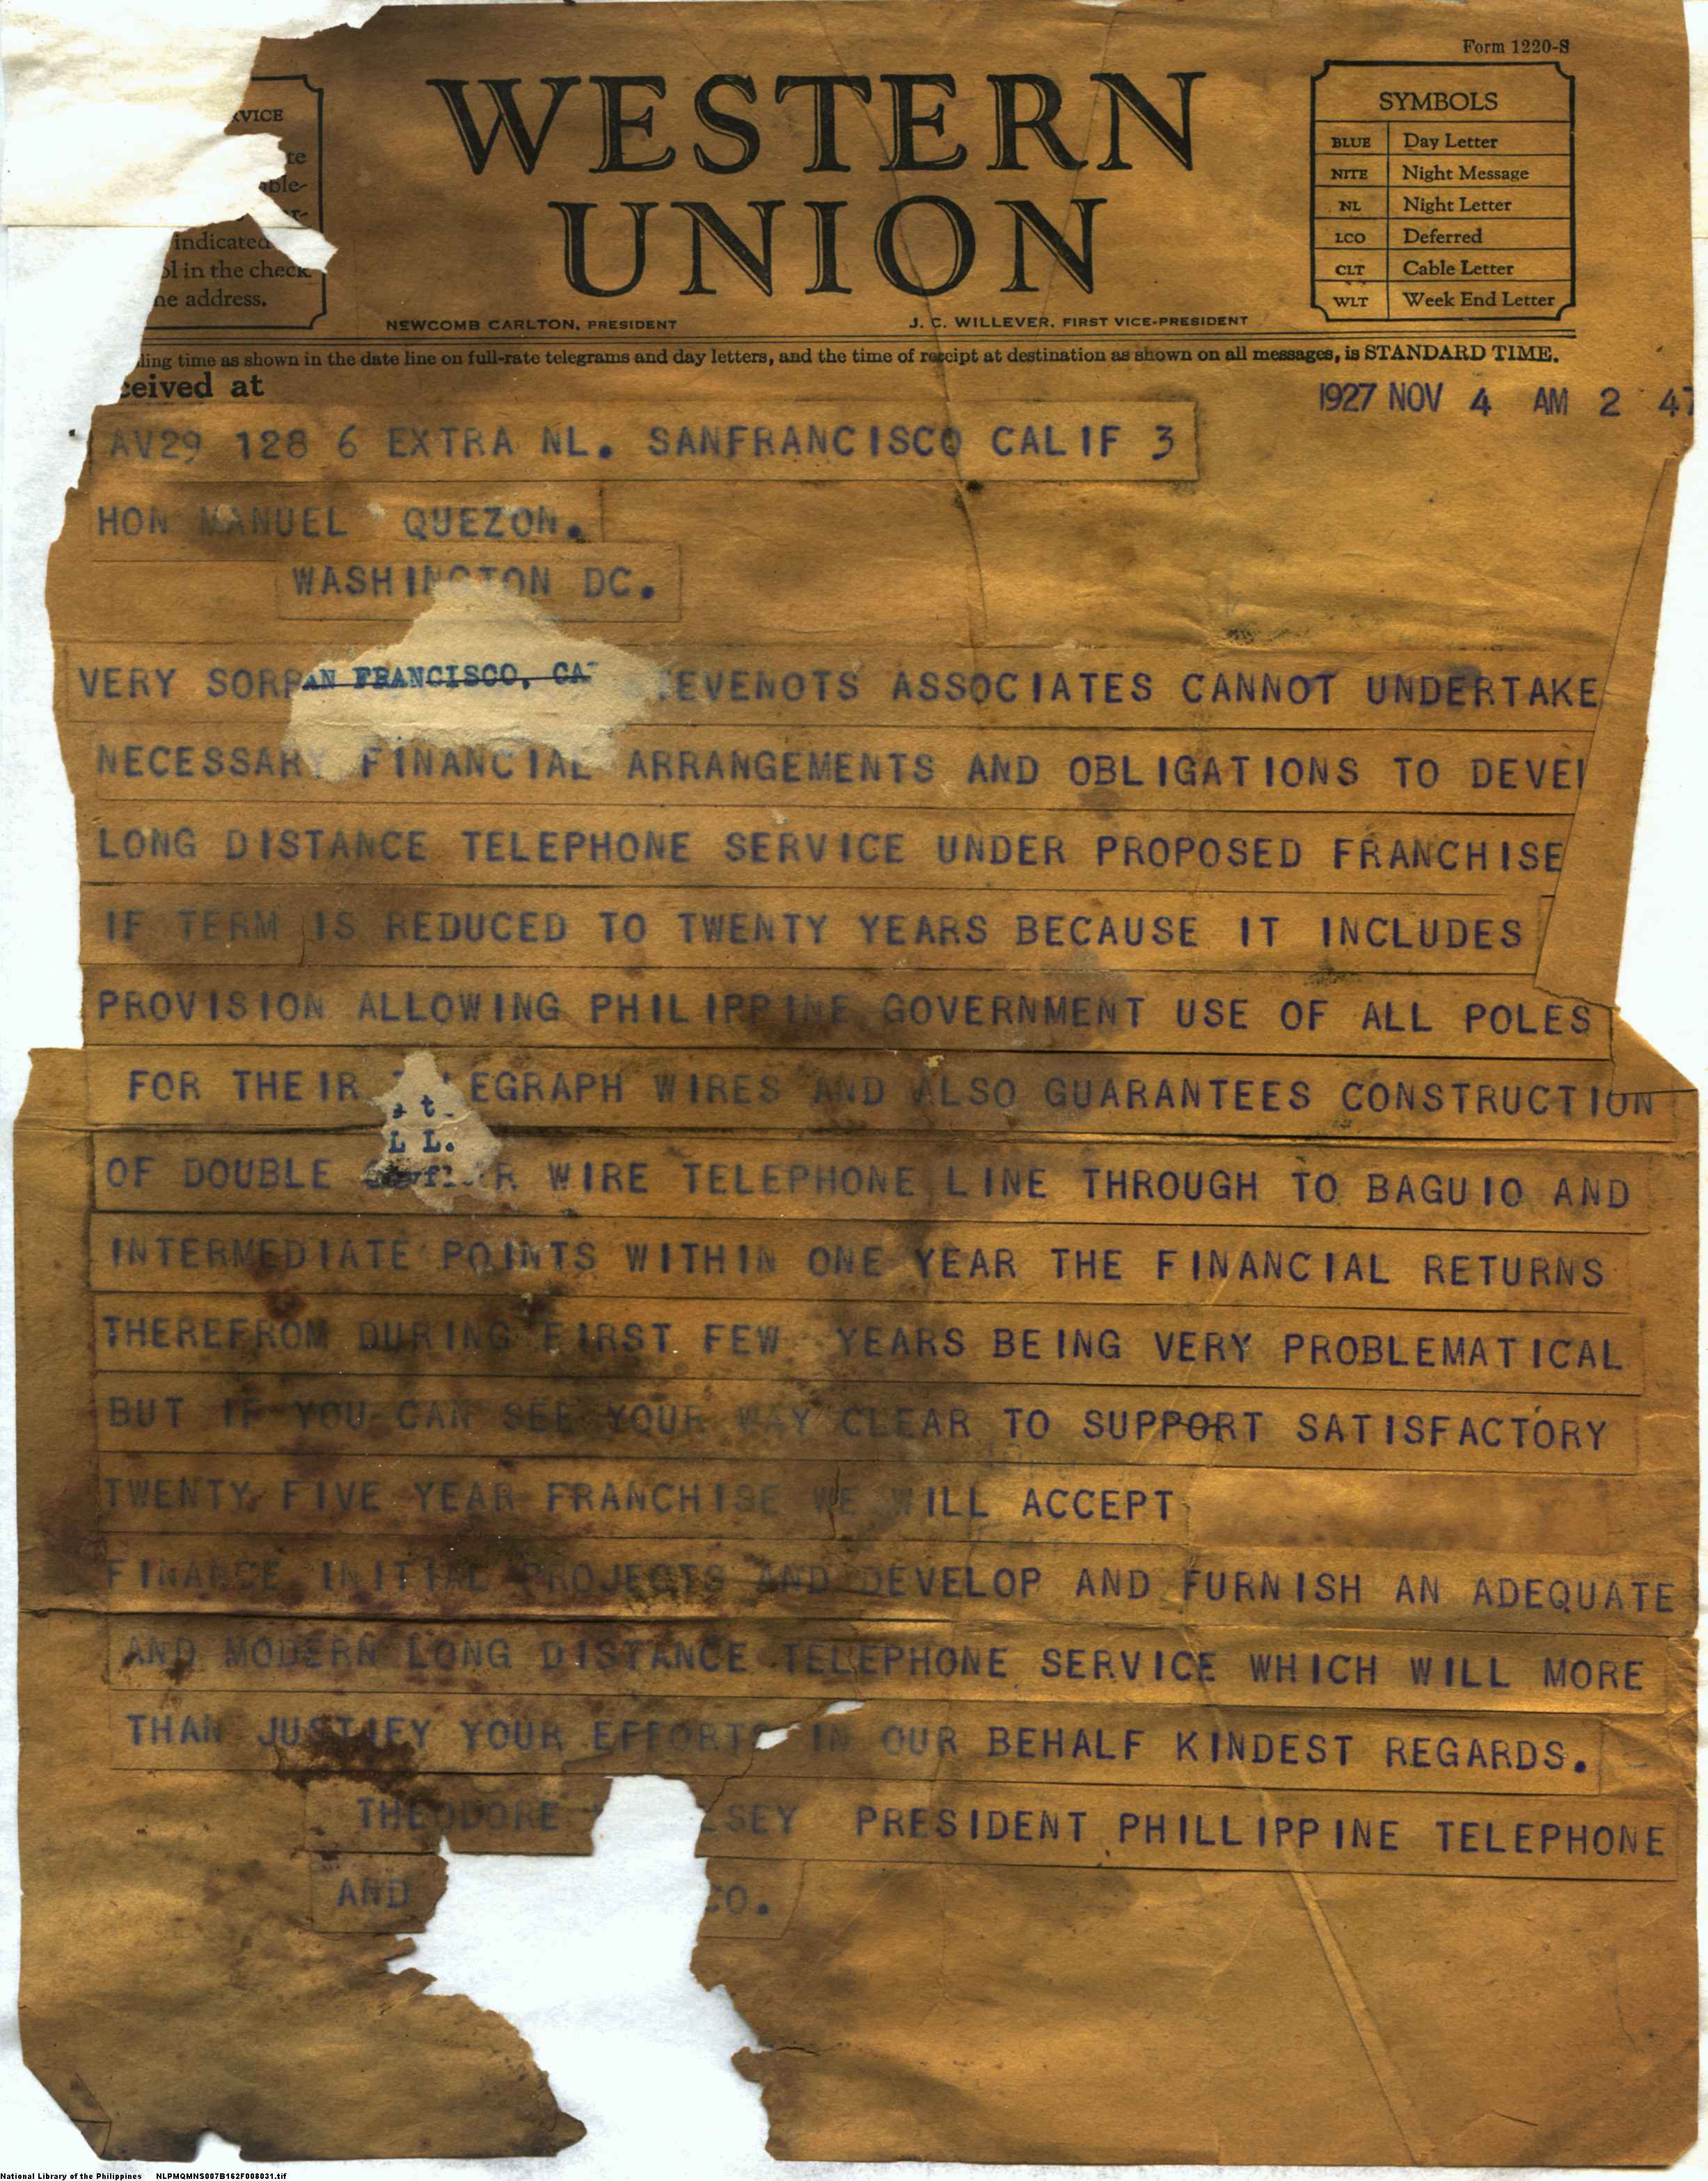 Form 1220-S
WESTERN
UNION
SYMBOLS
BLUE Day Letter
NITE Night Message
NL Night Letter
LCO Deferred
CLT Cable Letter
WLT Week End Letter
indicated
in the check
address.
NEWCOMB CARLTON, PRESIDENT
J. C. WILLEVER, FIRST VICE-PRESIDENT
time as shown in the date line on full-rate telegrams and day letters, and the time of receipt at destination as shown on all messages, is STANDARD TIME.
at
1927 NOV 4 AM 2 47
AV29 128 6 EXTRA NL. SANFRANCISCO CALIF 3
HON MANUEL QUEZON.
WASHINGTON DC.
VERY FRANCISCO, EVENOTS ASSOCIATES CANNOT UNDERTAKE
NECESSARY FINANCIAL ARRANGEMENTS AND OBLIGATIONS TO
LONG DISTANCE TELEPHONE SERVICE UNDER PROPOSED FRANCHISE
IF TERM IS REDUCED TO TWENTY YEARS BECAUSE IT INCLUDES
PROVISION ALLOWING PHILIPPINE GOVERNMENT USE OF ALL POLES
FOR THEIR EGRAPH WIRES AND ALSO GUARANTEES CONSTRUCTION
OF DOUBLE WIRE TELEPHONE LINE THROUGH TO BAGUIO AND
INTERMEDIATE POINTS WITHIN ONE YEAR THE FINANCIAL RETURNS
THEREFROM DURING FIRST FEW YEARS BEING VERY PROBLEMATICAL
BUT IF YOU CAN SEE YOUR WAY CLEAR TO SUPPORT SATISFACTORY
TWENTY FIVE YEAR FRANCHISE WE WILL ACCEPT
FINANCE INITIAL PROJECTS AND DEVELOP AND FURNISH AN ADEQUATE
AND MODERN LONG DISTANCE TELEPHONE SERVICE WHICH WILL MORE
THAN JUSTIFY YOUR EFFORTS IN OUR BEHALF KINDEST REGARDS.
THEODORE SEY PRESIDENT PHILLIPPINE TELEPHONE
AND CO.
National Library of the Philippines NLPMQMNS007B162F008031.tif